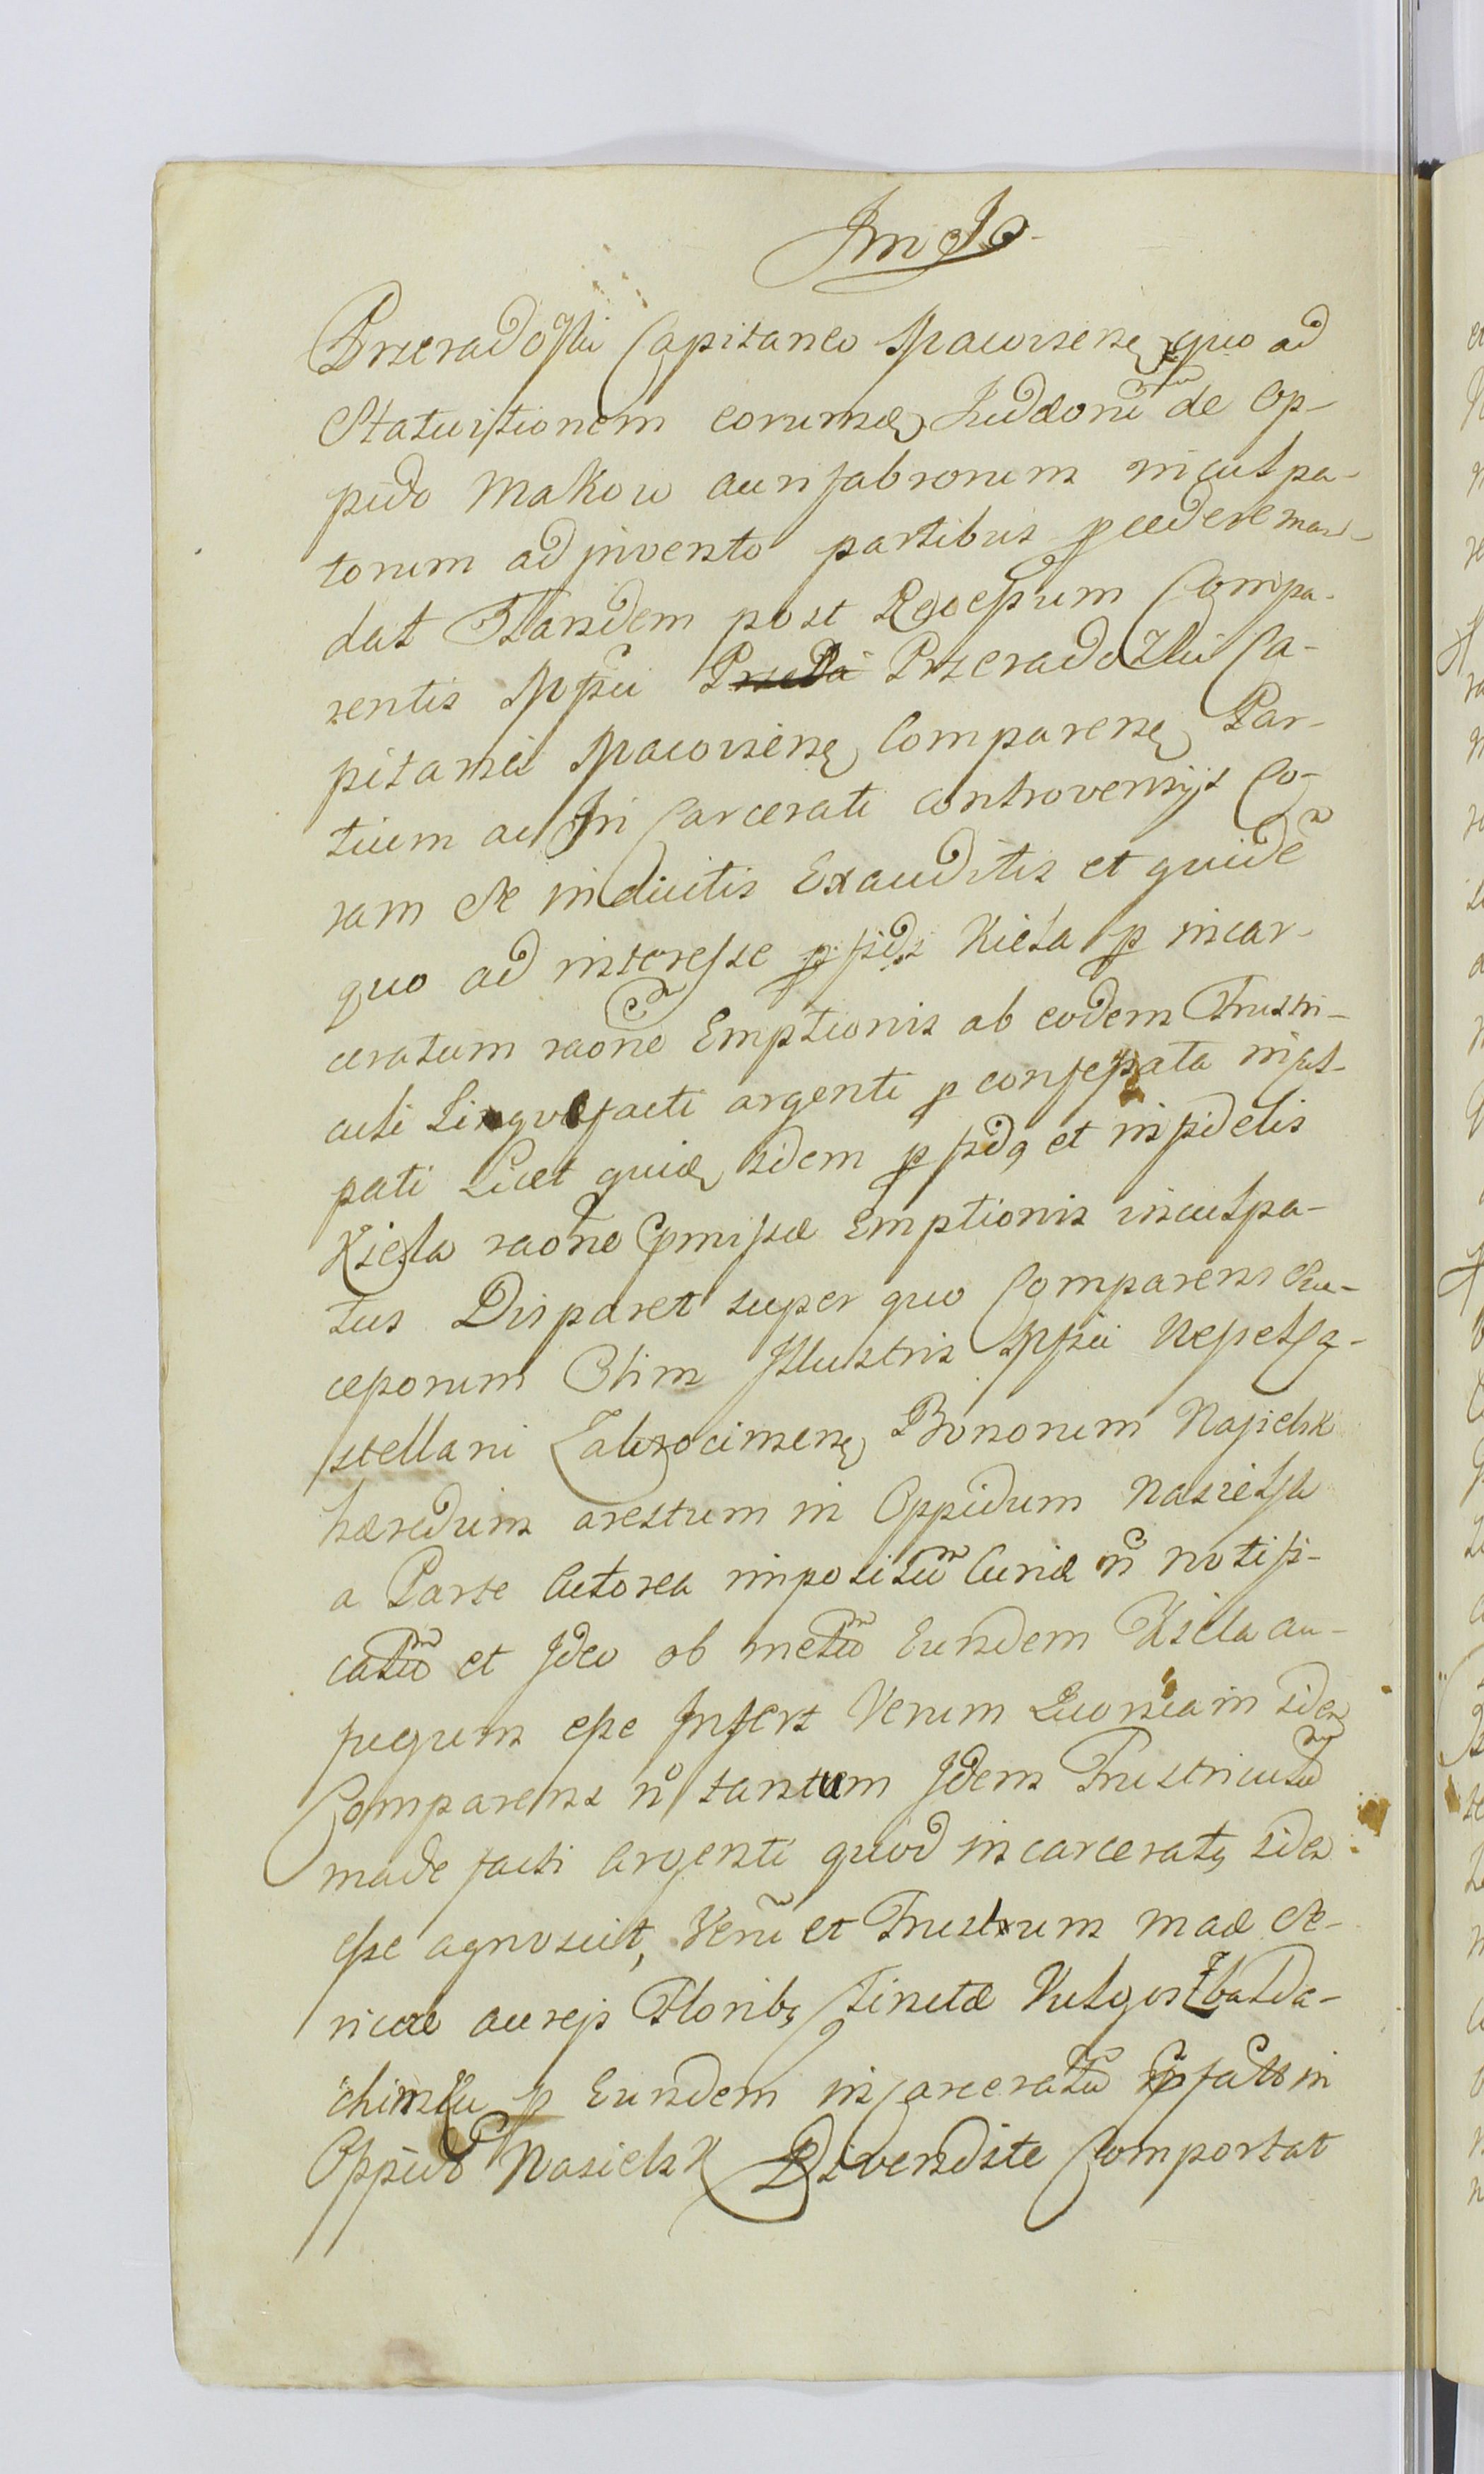 Przeradoſki Capitaneo Macovienſ quo ad
Statuitionem eorumd Judæorũ de Op-
pido Makow aurifabrorum inculpa-
torum adinvento partibus pcedere man-
dat Tandem post Receſsum Compa-
rentis Mfici Przeradozki Ca-
pitanei Macovienſ Comparenſ Par-
tium ac In Carcerati controversijs Co-
ram se inductis Exauditis et quidẽ
quo ad interesse pfidi Kiela p incar-
ceratum raõne Emptionis ab eodem Frustri-
culi Liquefacti argenti p confeſsata incul-
pati Licet quid idem pfidq et infidelis
Kiela raõne pmiſsæ Emptionis inculpa-
tus Disparet super quo Comparens Suc-
ceſsorum Olim Illustris Mfici Neſelſ Ca-
stellani Zakrocimenſ Bonorum Nasielsk
hæredum arestum in Oppidum Nasielsk
a Parte Actorea impositũ Curiæ ñ notifi-
catũ et Ideo ob metũ Eundem Kiela au-
fugum eſse Infert Verum Quoniam idem
Comparens ñ tantum Idem Frusticulũ
madefacti argenti quod incarceratq idem
eſse agnoscit, Verũ et Frustrum maæ Se-
ricæ aureis Floribq Tinctæ Vulgo Zbalda-
chimku p Eundem incarceratũ in
Oppido Nasielsk Divendite Comportat